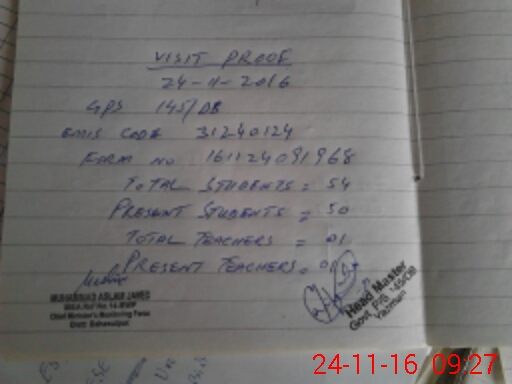 VISIT PROOF
24-11-2016
GPS 145/DB
EMIS CODE 31240124
FORM NO 161124091968
TOTAL STUDENTS = 54
PRESENT STUDENTS = 50
TOTAL TEACHERS = 01
PRESENT TEACHERS = 01
MUHAMMAD ASLAM JAVED
Chief Minister's Monitoring Force
Distt: Bahawalpur
Head Master
Govt. P/S 145/DB
Yazman
24-11-16 09:27